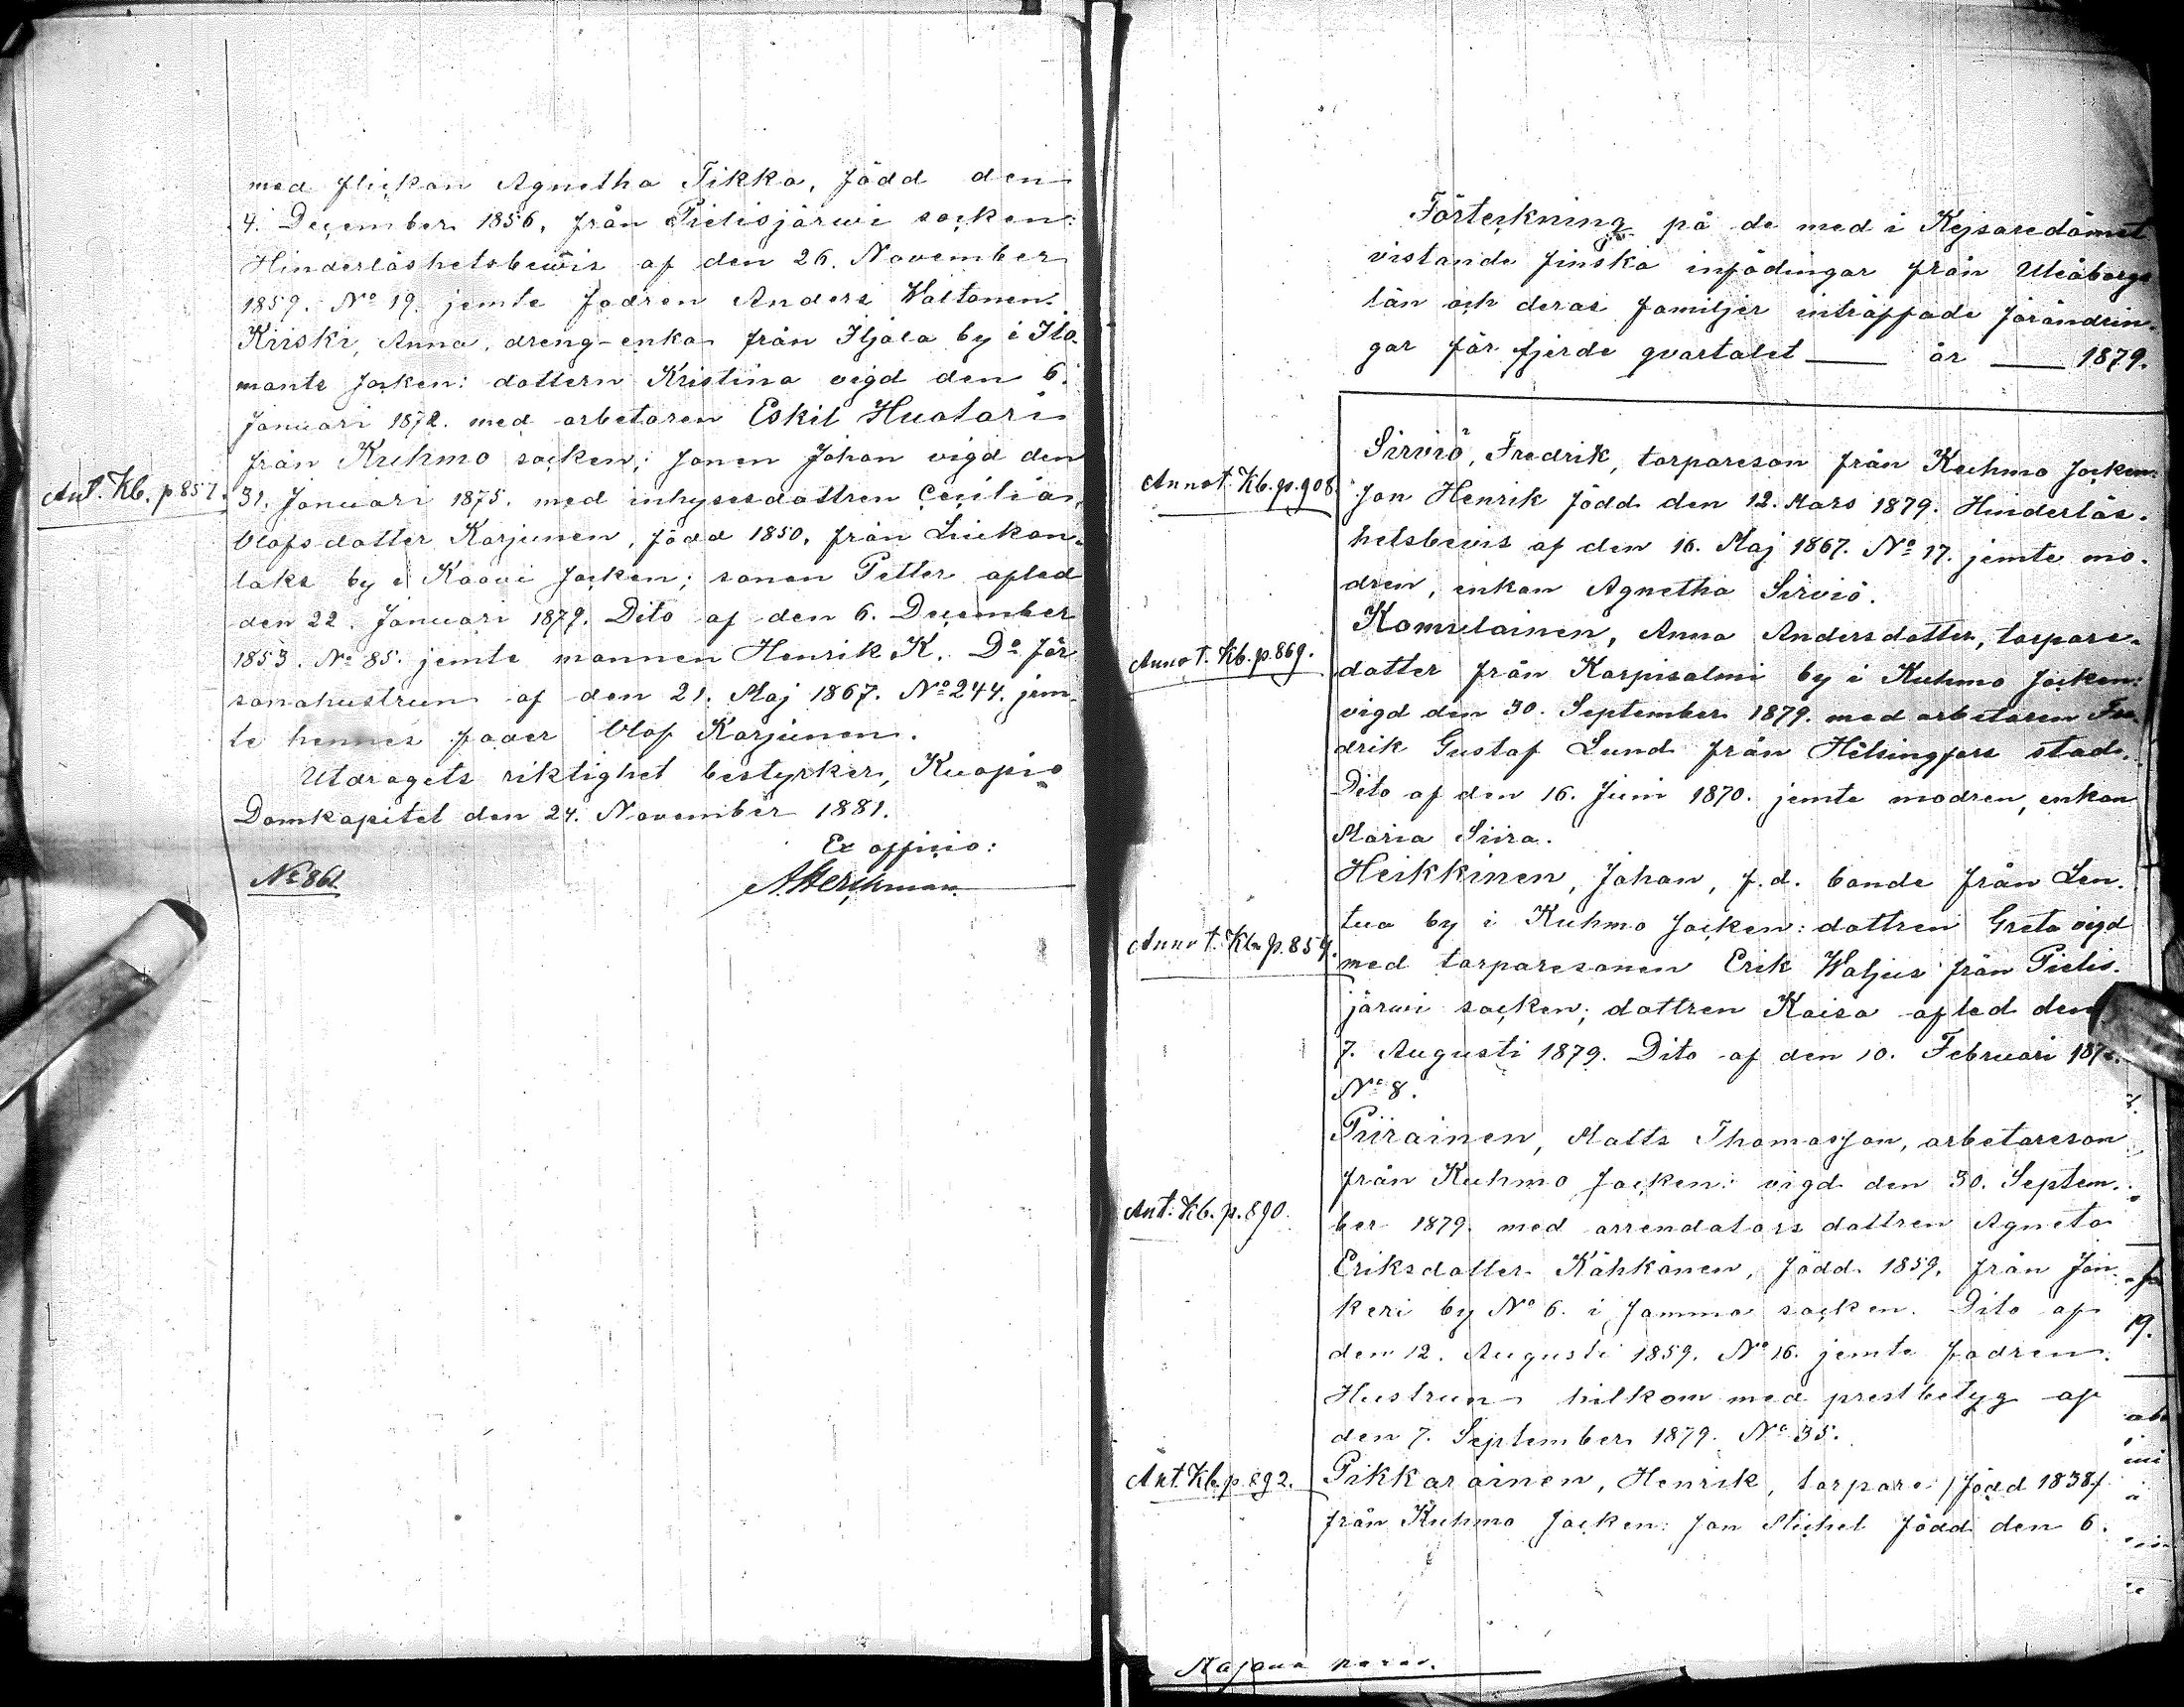 med flickan Agnetha Tikka, född den
4. December 1856, från Pielisjärwi socken:
Hinderlöshetsbewis af den 26. November
1859. No 19. jemte fadren Anders Waltonen.
Kiiski, Anna, dreng-enka från Iljala by i Ilo-
mants socken: dottern Kristina vigd den 6.
Januari 1872. med arbetaren Eskil Huotari
från Kuhmo socken; sonen Johan vigd den
Ant. Kb. p. 857.
31. Januari 1875. med inhysesdottren Cecilia
Olofsdotter Karjunen, född 1850, från Luikon-
laks by i Kaavi socken; sonen Petter afled
den 22. Januari 1879. Dito af den 6. December
1853. No 85. jemte mannen Henrik K. Do för
sonahustrun af den 21. Maj 1867. No 244. jem-
te hennes fader Olof Karjunen.
Utdragets riktighet bestyrker, Kuopio
Domkapitel den 24. November 1881.
Ex officio:
No 861

Förteckning på de med i Kejsaredömet
vistande finska infödingar från Uleåborgs
län och deras familjer inträffade förändrin-
gar för fjerde qvartalet år 1879.
Sirviö, Fredrik, torpareson från Kuhmo socken:
Annot. Kb. p. 908.
son Henrik född den 12. Mars 1879. Hinderlös-
hetsbevis af den 16. Maj 1867. No 17. jemte mo-
dren, enkan Agnetha Sirviö.
Komulainen, Anna Andersdotter, torpare-
Annot. Kb. p. 869.
dotter från Korpisalmi by i Kuhmo socken:
vigd den 30. September 1879. med arbetaren Fre-
drik Gustaf Lund från Helsingfors stad.
Dito af den 16. Juni 1870. jemte modren, enkan
Maria Siira.
Heikkinen, Johan, f.d. bonde från Len-
tua by i Kuhmo socken: dottren Greta vigd
Annot. Kb. p. 859.
med torparesonen Erik Waljus från Pielis-
järwi socken; dottren Kaisa afled den
7. Augusti 1879. Dito af den 10. Februari
No 8.
Piirainen, Matts Thomasson, arbetareson
från Kuhmo socken: vigd den 30. Septem-
Ant. Kb. p. 890.
ber 1879. med arrendators dottren Agneta
Eriksdotter Kähkönen, född 1859, från Jon-
keri by No 6. i samma socken. Dito af
den 12. Augusti 1859. No 16. jemte fadren.
Hustrun hitkom med prestbetyg af
den 7. September 1879. No 35.
Ant. Kb. p. 892.
Pikkarainen, Henrik, torpare /född 1838/
från Kuhmo socken: son Michel född den 6.